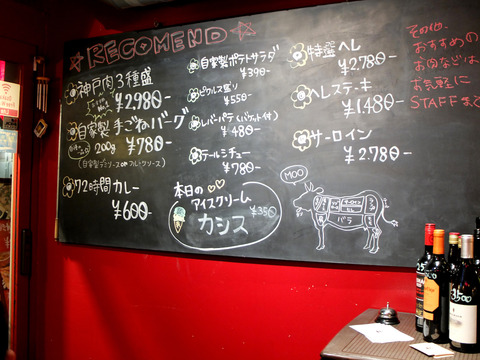 RECOMEND
神戸肉3種盛
¥2,980-
自家製 手ごねバーグ
200g ¥780-
(自家製デミソース or フルーツソース)
72時間カレー
¥600-
自家製ポテトサラダ
¥390-
ピクルス盛り
¥550-
レバーパテ(バケット付)
¥480-
テールシチュー
¥780-
本日の
アイスクリーム
¥350
カシス
特選ヘレ
¥2,780-
ヘレステーキ
¥1,480-
サーロイン
¥2,780-
MOO
バラ
その他
おすすめの
お肉などは
お気軽に
STAFFまで
3500